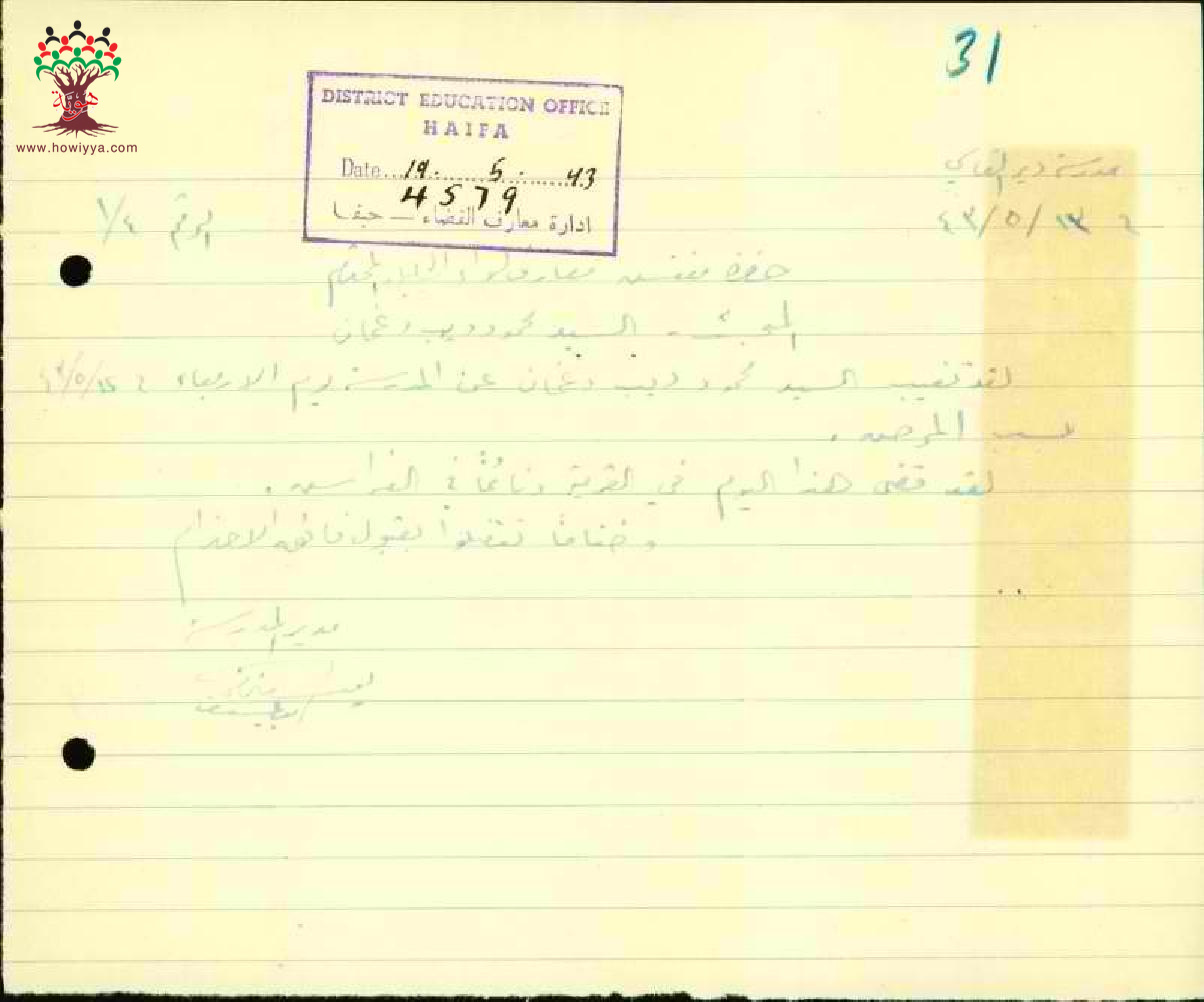 31
هوية
www.howiyya.com
DISTRICT EDUCATION OFFICE
HAIFA
Date...19......5.......43
4579
ادارة معارف القضاء — حيفا
مدرسة دير القاسي
في ١٣/٥/٤٣
الرقم ١/٤
حضرة مفتش معارف لواء المحترم
المبحث - السيد محمود ديب دغمان
لقد تغيب السيد محمود ديب دغمان عن المدرسة يوم الاربعاء في ١٢/٥/٤٣
بسبب المرض.
لقد قضى هذا اليوم في القرية ونائماً في الفراش.
وختاماً تفضلوا بقبول فائق الاحترام
مدير المدرسة